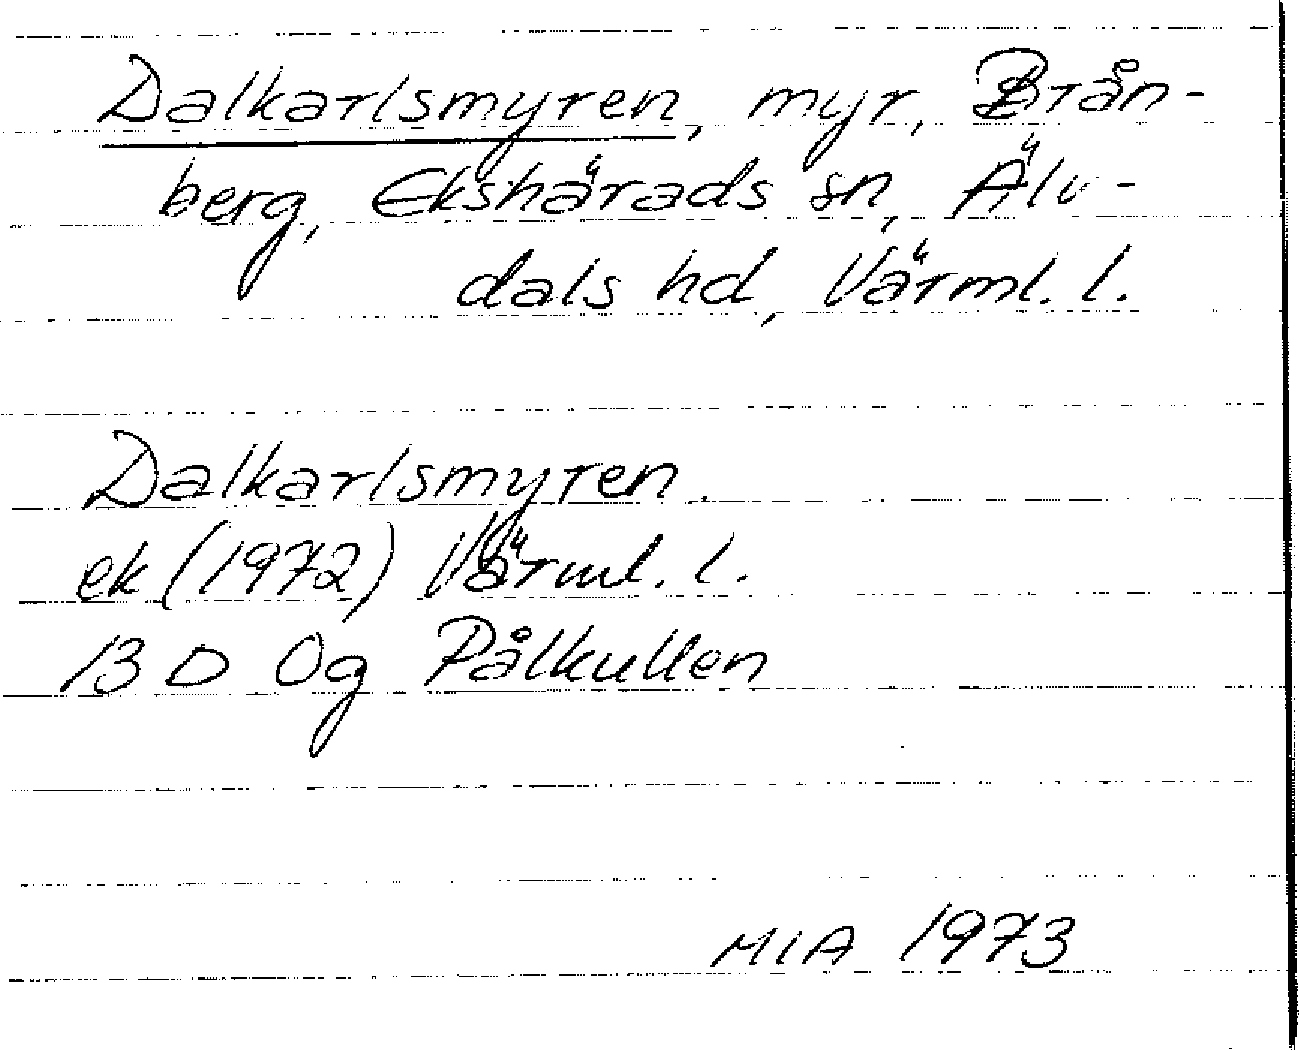 Dalkarlsmyren, myr, Brån-
berg, Ekshärads sn, Älv-
dals hd, Värml. l.
Dalkarlsmyren.
ek (1972) Värml. l.
13 D 0g Pålkullen
MIA 1973